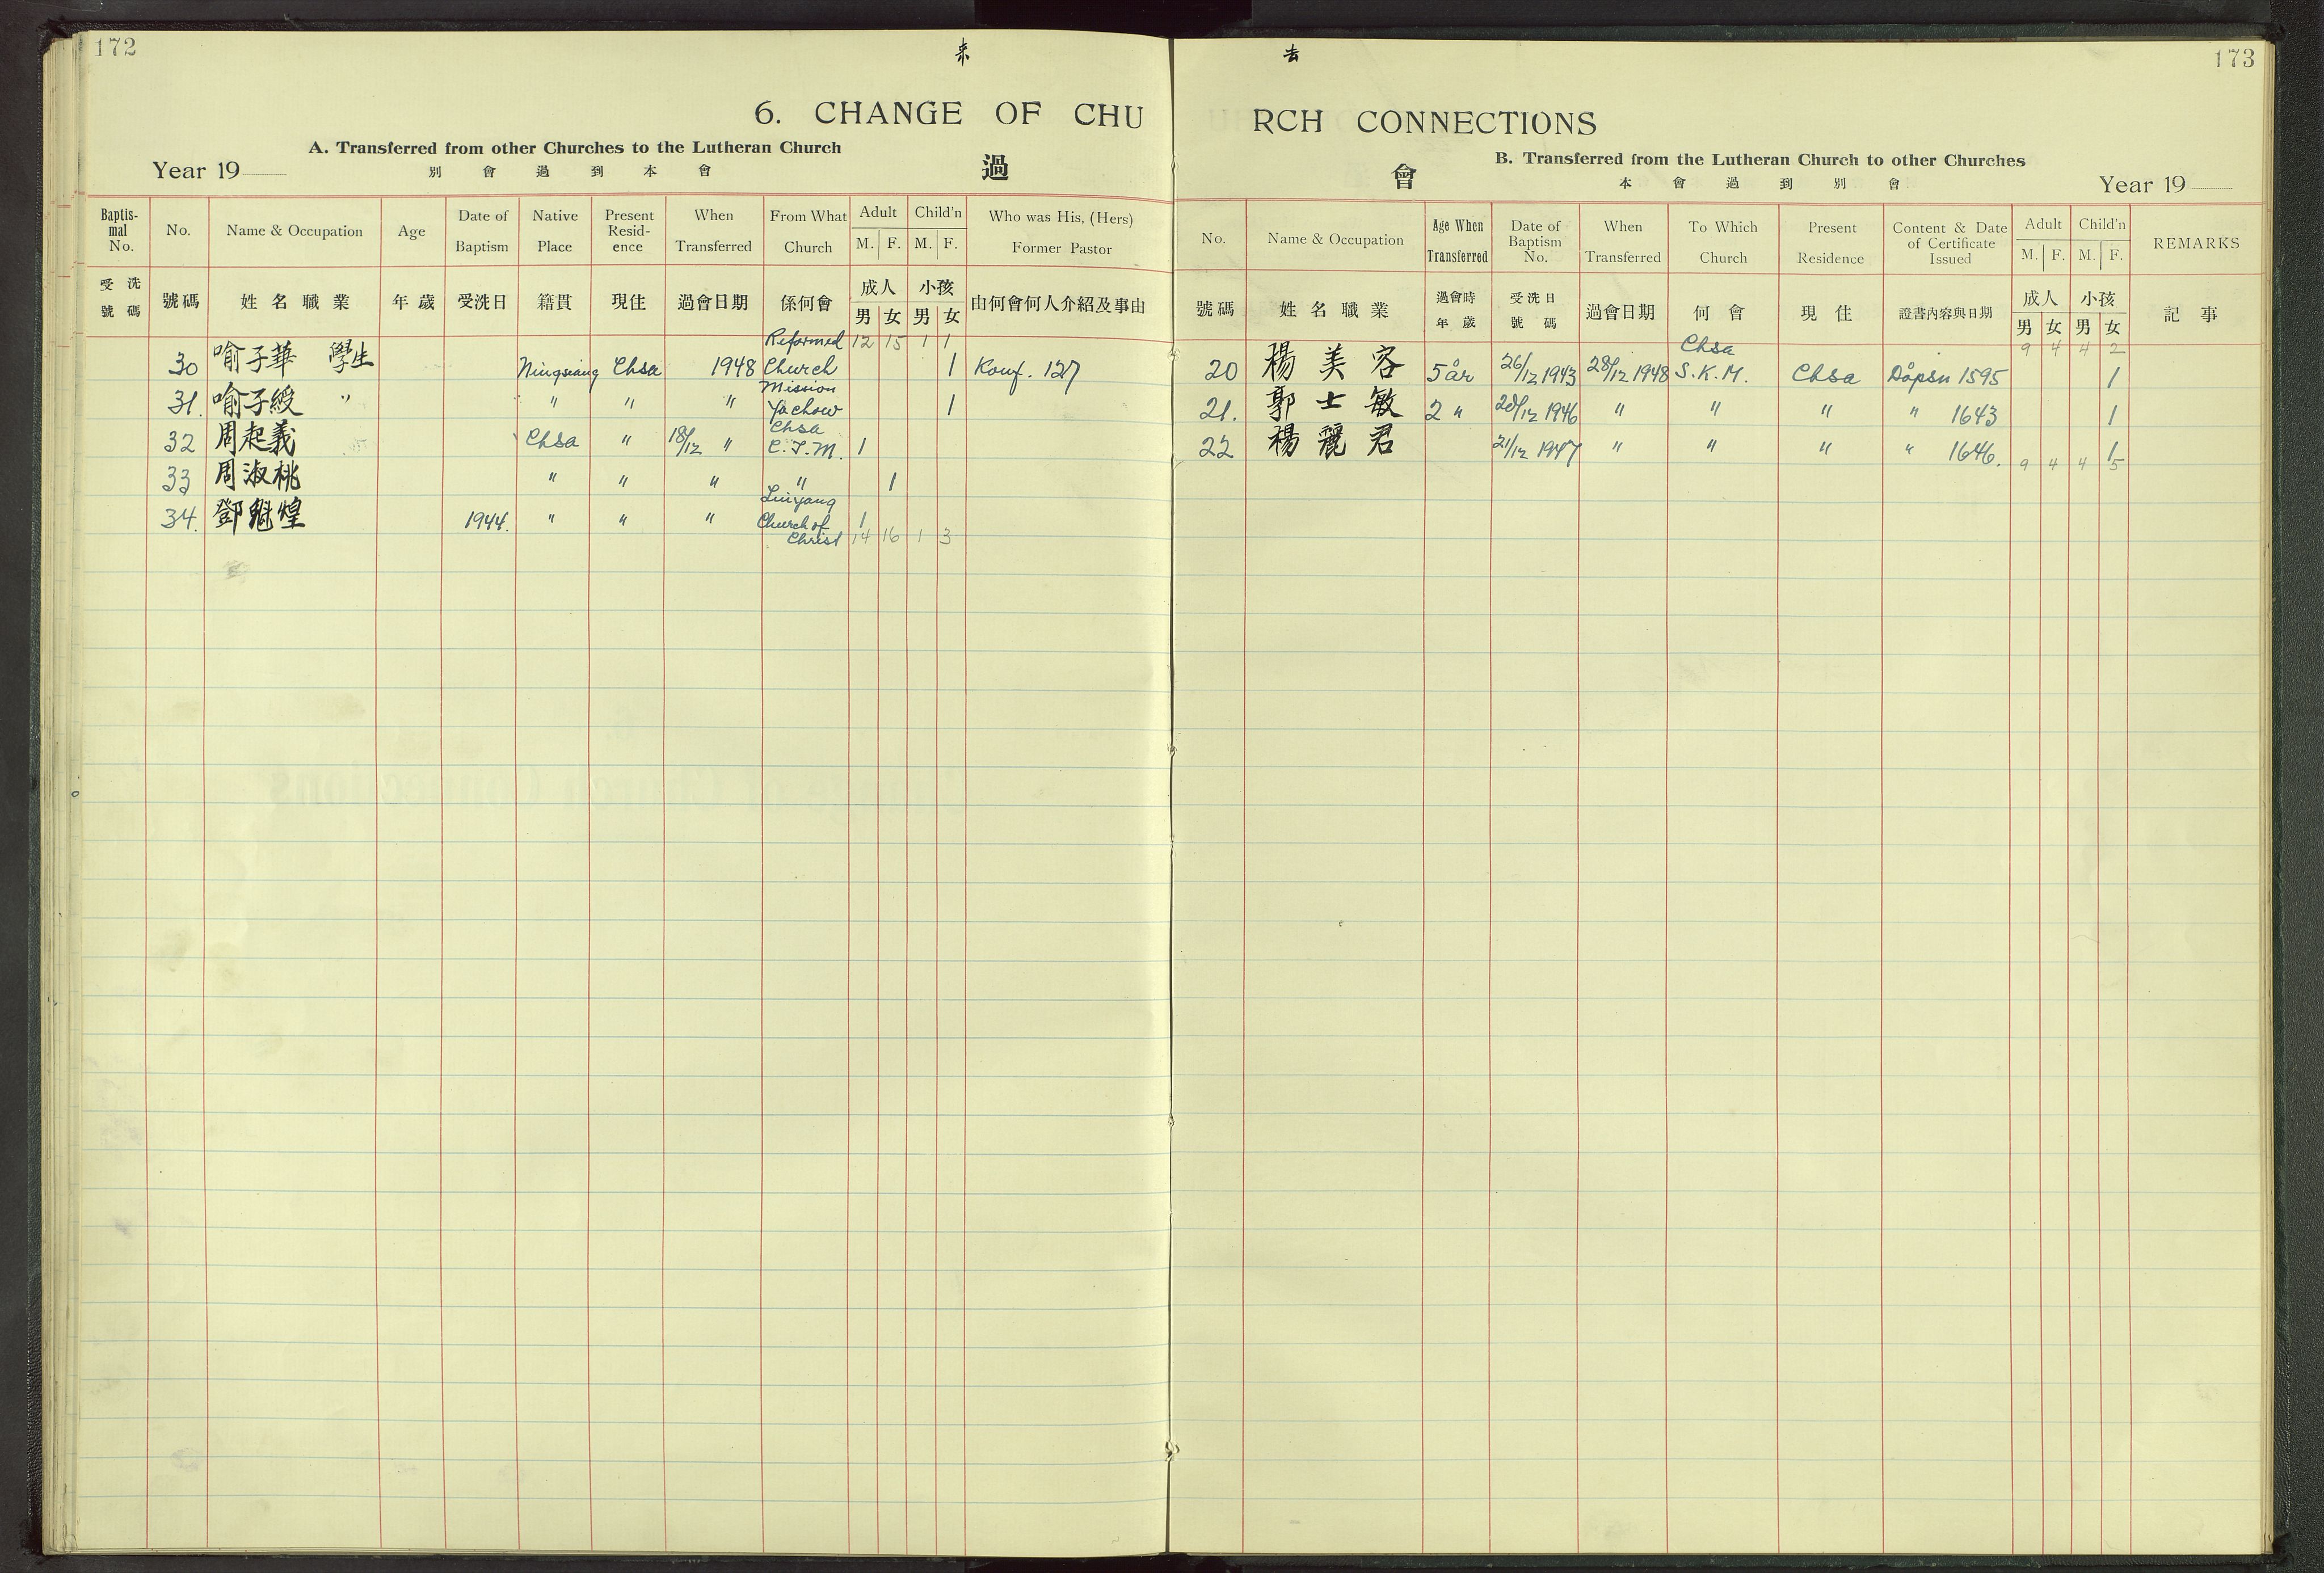 172
來
6. CHANGE OF CHU
A. Transferred from other Churches to the Lutheran Church
Year 19
別會過到本會
過
Baptismal No. No. Name & Occupation Age Date of Baptism Native Place Present Residence When Transferred From What Church Adult M. F. Child'n M. F. Who was His, (Hers) Former Pastor
受洗號碼 號碼 姓名職業 年歲 受洗日 籍貫 現住 過會日期 係何會 成人 男 女 小孩 男 女 由何會何人介紹及事由
12 15 1 1
30 喻子華 學生 Ningsiang Chsa 1948 Reformed Church 1 Konf. 127
31. 喻子綬 " " " " Mission Yochow 1
32 周起義 Chsa " 18/12 " Chsa C.I.M. 1
33 周淑桃 " " " " 1
34. 鄧魁煌 1944. " " " Liuyang Church of Christ 1
14 16 1 3
173
去
RCH CONNECTIONS
B. Transferred from the Lutheran Church to other Churches
會
本會過到別會
Year 19
No. Name & Occupation Age When Transferred Date of Baptism No. When Transferred To Which Church Present Residence Content & Date of Certificate Issued Adult M. F. Child'n M. F. REMARKS
號碼 姓名職業 過會時年歲 受洗日號碼 過會日期 何會 現住 證書內容與日期 成人 男 女 小孩 男 女 記事
9 4 4 2
20 楊美容 5 år 26/12 1943 28/12 1948 Chsa S.K.M. Chsa Dåpsn 1595 1
21. 郭士敏 2 " 1946 " " " " 1643 1
22 楊麗君 21/12 1947 " " " " 1646. 1
9 4 4 5